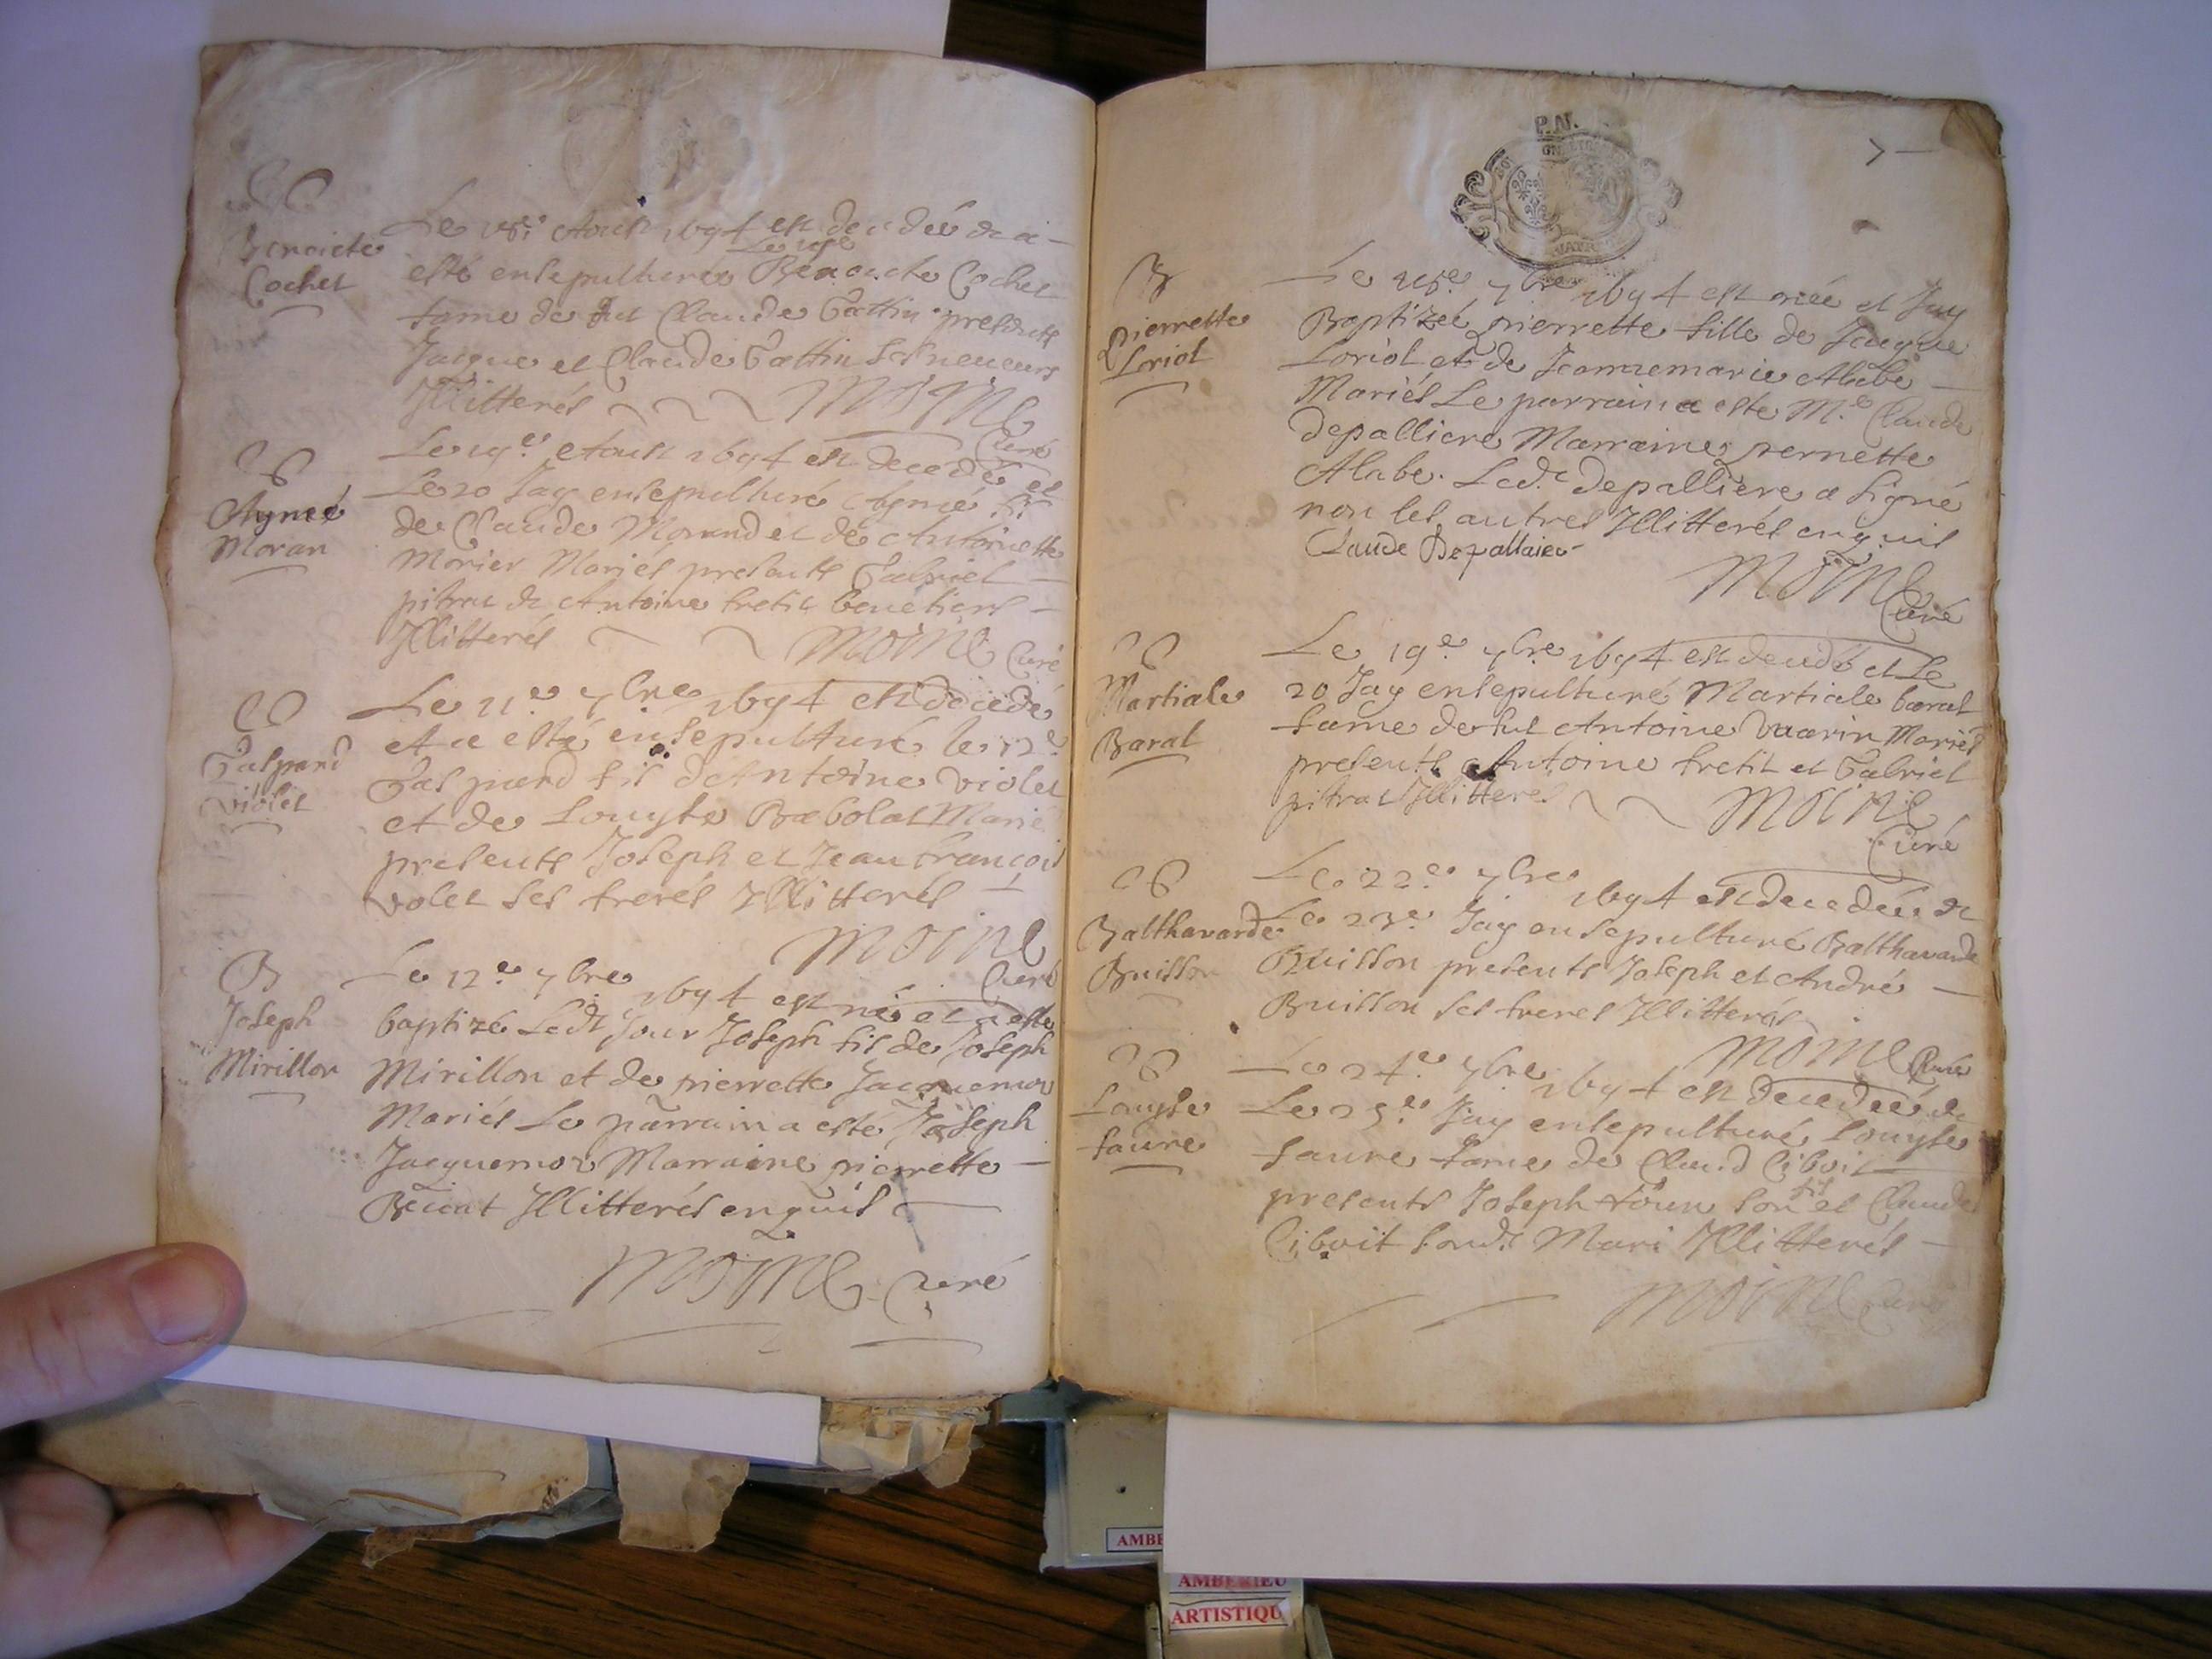 Benoiste
Cochet
Le 18e Aoust 1694 est decedée & a
Le 19e
esté ensepulturée Benoiste Cochet
fame de fut Claude Gottin presents
Jacque et Claude Gottin ses neueurs
Illitterés Moine
Curé
Agneé
Moran
Le 19e Aoust 1694 est decedé et
Le 20 Jay ensepulturé Agneé
de Claude Morand et de Antoinette
Morier Mariés presents Gabriel
pitrat & Antoine fretit
Illitterés Moine Curé
Gaspard
Violet
Le 11e 7bre 1694 est decedé
et a esté ensepulturé le 12e
Gaspard fis dAntoine Violet
et de Louyse Babolat Marié
presents Joseph et Jean francois
volet ses frerés Illitterés
Moine
Curé
B
Joseph
Mirillon
Le 12e 7bre 1694 est né et a esté
baptizé Ledt Jour Joseph fis de Joseph
Mirillon et de pierrette Jacquemor
Mariés Le parrain a esté Joseph
Jacquemor Marraine pierrette
Illitterés enquis
Moine Curé
P.N.
7
B
pierrette
Loriol
Le 7bre 1694 est née et Jay
Baptizeé pierrette fille de Jacque
Loriol et de Jeannemarie Alabe
Mariés Le parrain a esté M.e Claude
depalliere Marraine pernette
Alabe. Led.t depalliere a signé
non les autres Illitterés enquis
Claude Depallaire
Moine
Curé
Martiale
Baral
Le 19e 7bre 1694 est decedé et Le
20 Jay ensepulturé Martiale baral
fame de fut Antoine Vaarin Mariés
presents Antoine fretit et Gabriel
pitrat Illitteres Moine
Curé
Balthazarde
Buisson
Le 22e 7bre 1694 est decedée &
Le 23e Jay ensepulturé Balthazarde
Buisson presents Joseph et André
Buisson ses freres Illitterés
Moine Curé
Louyse
faure
Le 24e 7bre 1694 est decedeé &
Le 25e Jay ensepulturé Louyse
faure fame de Claud Ciboit
fis
presents Joseph son et Claude
Ciboit sondt Mari Illitterés
Moine Curé
AMBE
AMBERIEU
ARTISTIQU